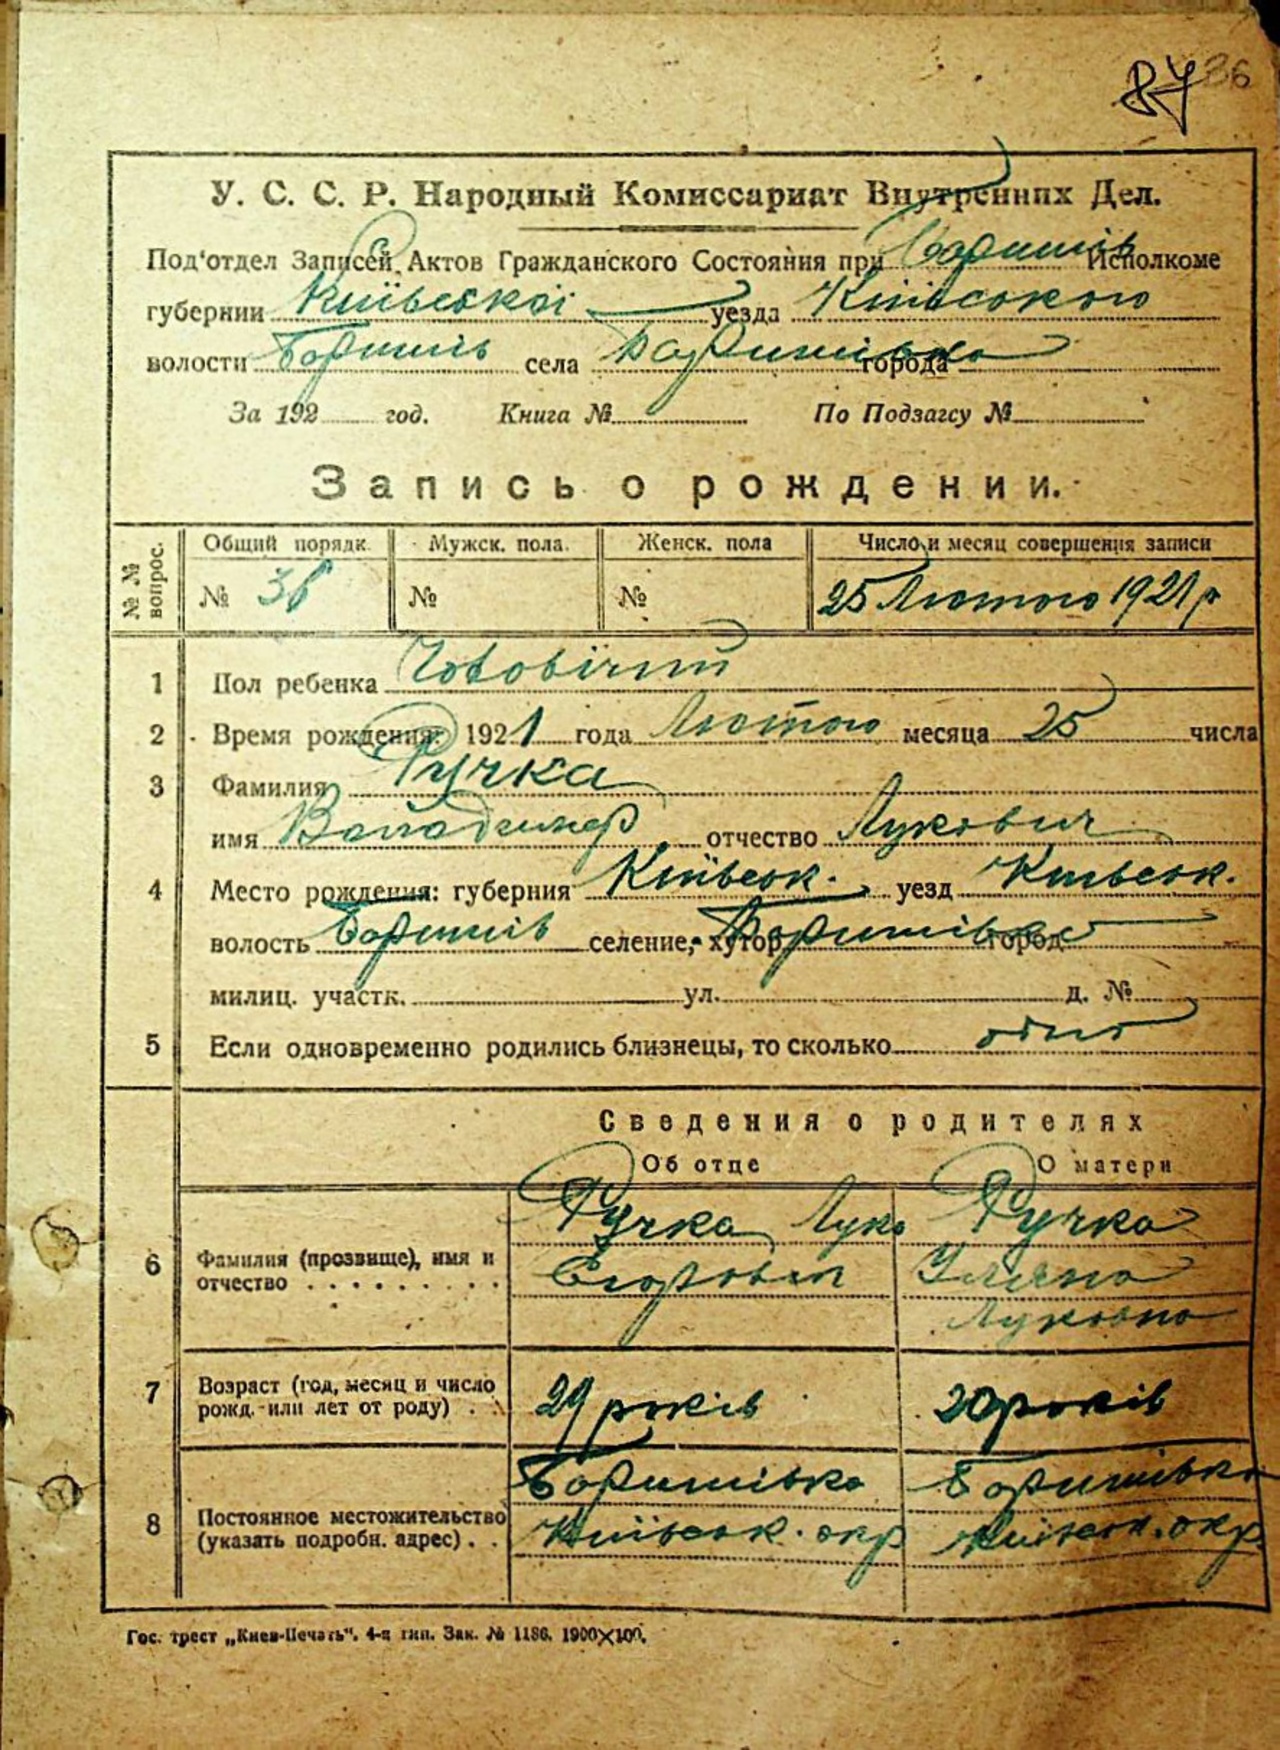 87 86
У. С. С. Р. Народный Комиссариат Внутренних Дел.
Под'отдел Записей Актов Гражданского Состояния при Баришів Исполкоме
губернии Київської уезда Київського
волости Баришів села Баришівка города
За 192 год. Книга № По Подзагсу №
Запись о рождении.
№ № вопрос. Общий порядк. Мужск. пола. Женск. пола Число и месяц совершения записи
№ № № 25 Лютого 1921 р
1 Пол ребенка Чоловічий
2 Время рождения: 1921 года Лютого месяца 25 числа
3 Фамилия Ручка
имя отчество Лукович
4 Место рождения: губерния Київськ. уезд Київськ.
волость Баришів селение, хутор Баришівка город
милиц. участк. ул. д. №
5 Если одновременно родились близнецы, то сколько одно
Сведения о родителях
Об отце О матери
Ручка Лука Ручка
6 Фамилия (прозвище), имя и Егорович Уляна
отчество . . . . . . . . . Луковна
7 Возраст (год, месяц и число 29 років 20 років
рожд. или лет от роду) . .
Баришівка Баришівка
8 Постоянное местожительство Київськ. окр Київськ. окр
(указать подробн. адрес) . .
Гос. трест „Киев-Печать“. 4-я тип. Зак. № 1186. 1900×100.